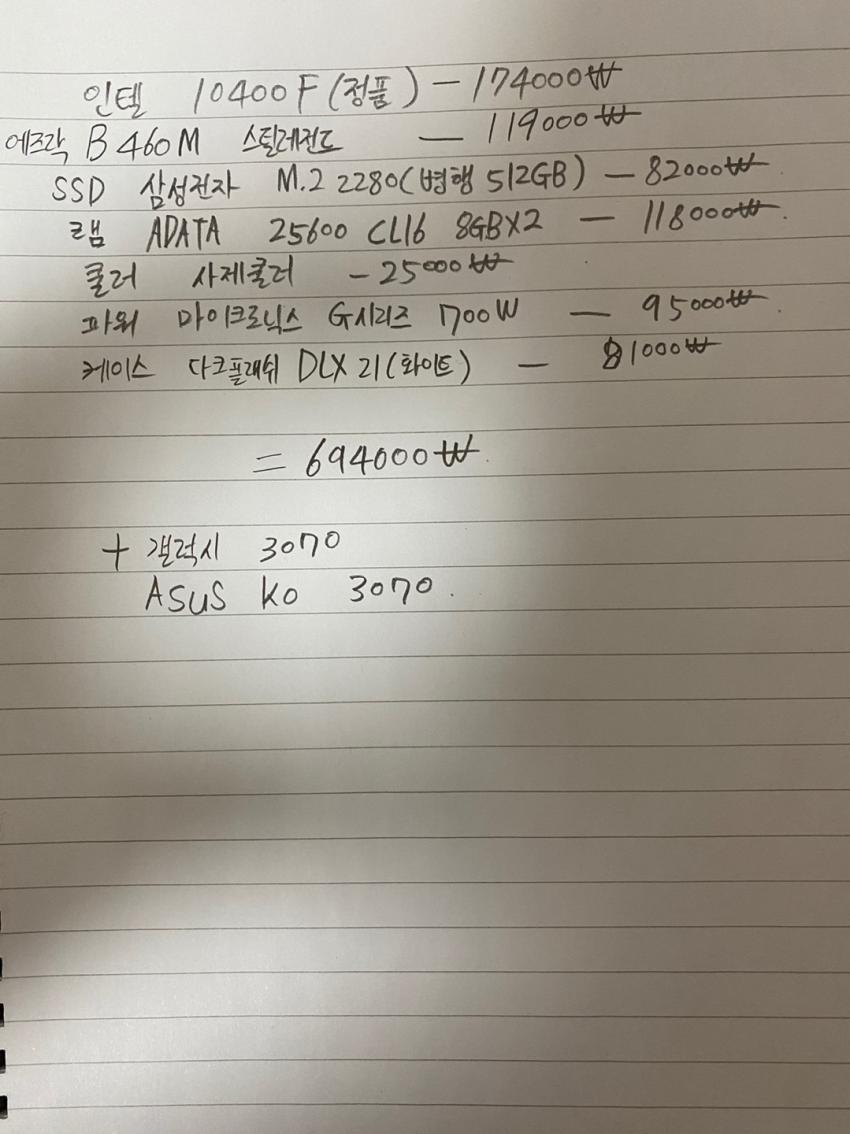 인텔 10400F (정품) - 174000₩
에즈락 B460M 스틸레전드 - 119000₩
SSD 삼성전자 M.2 2280(병행 512GB) - 82000₩
램 ADATA 25600 CL16 8GBX2 - 118000₩.
쿨러 사제쿨러 - 25000₩
파워 마이크로닉스 G시리즈 700W - 95000₩.
케이스 다크플래쉬 DLX 21(화이트) - 81000₩
= 694000₩.
+ 갤럭시 3070
ASUS KO 3070.